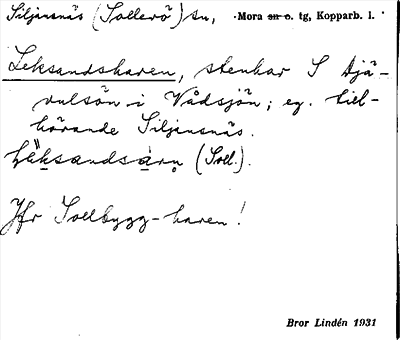 Siljansnäs (Sollerö) sn, Mora sn o. tg, Kopparb. l.
Leksandsharen, stenhar S Djä-
vulsön i Vådsjön; eg. till-
hörande Siljansnäs.
läksandsàrn (Soll.).
Jfr Sollbygg-haren!
Bror Lindén 1931